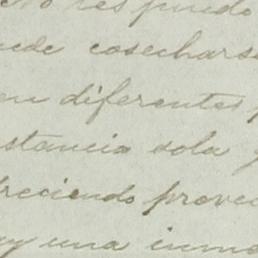 respondo
uede cosechars
en diferentes p
stancia sola y
freciendo provec
uy una inme